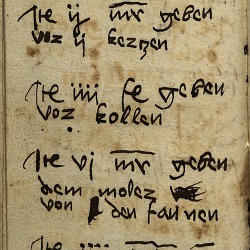 Jte ij mr geben
voz ij kerzen
Jte iiij ſe geben
voz kollen
Jte vj mr geben
dem molez
von den faunen
Jte iiij mr